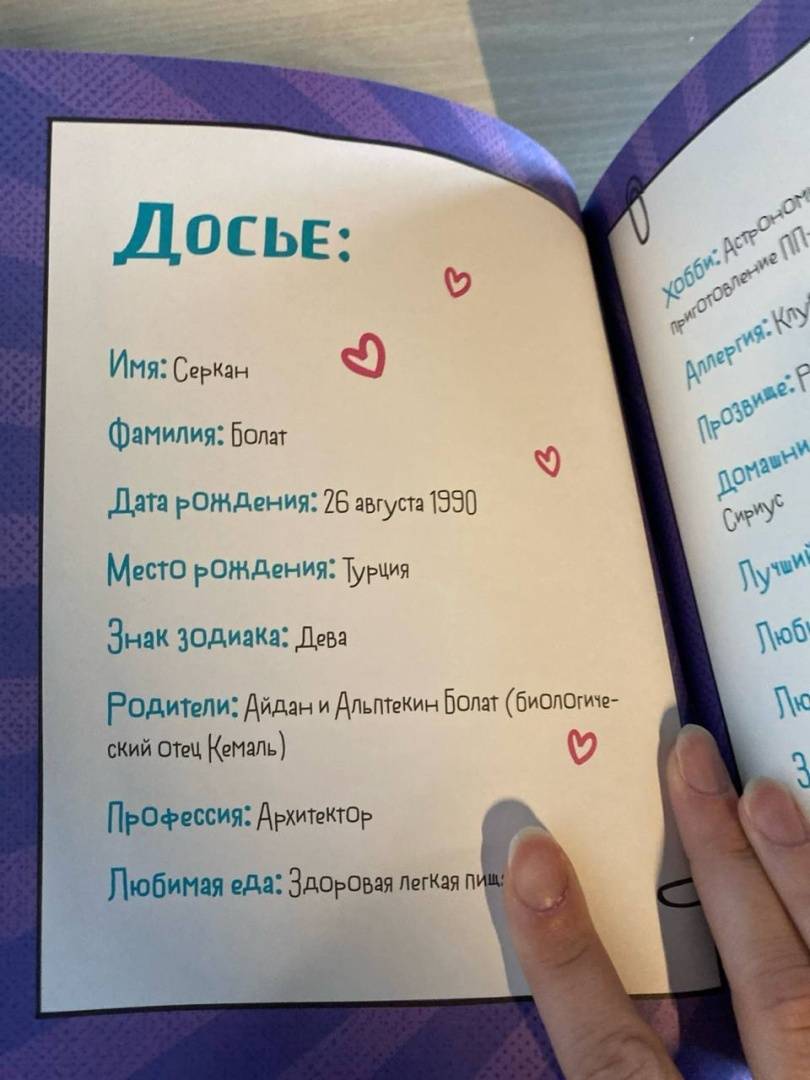 Досье:
Имя: Серкан
Фамилия: Болат
Дата рождения: 26 августа 1990
Место рождения: Турция
Знак зодиака: Дева
Родители: Айдан и Альптекин Болат (биологиче-
ский отец Кемаль)
Профессия: Архитектор
Любимая еда: Здоровая легкая
Хобби:
приготовление ПП-
Аллергия:
Прозвище:
Сириус